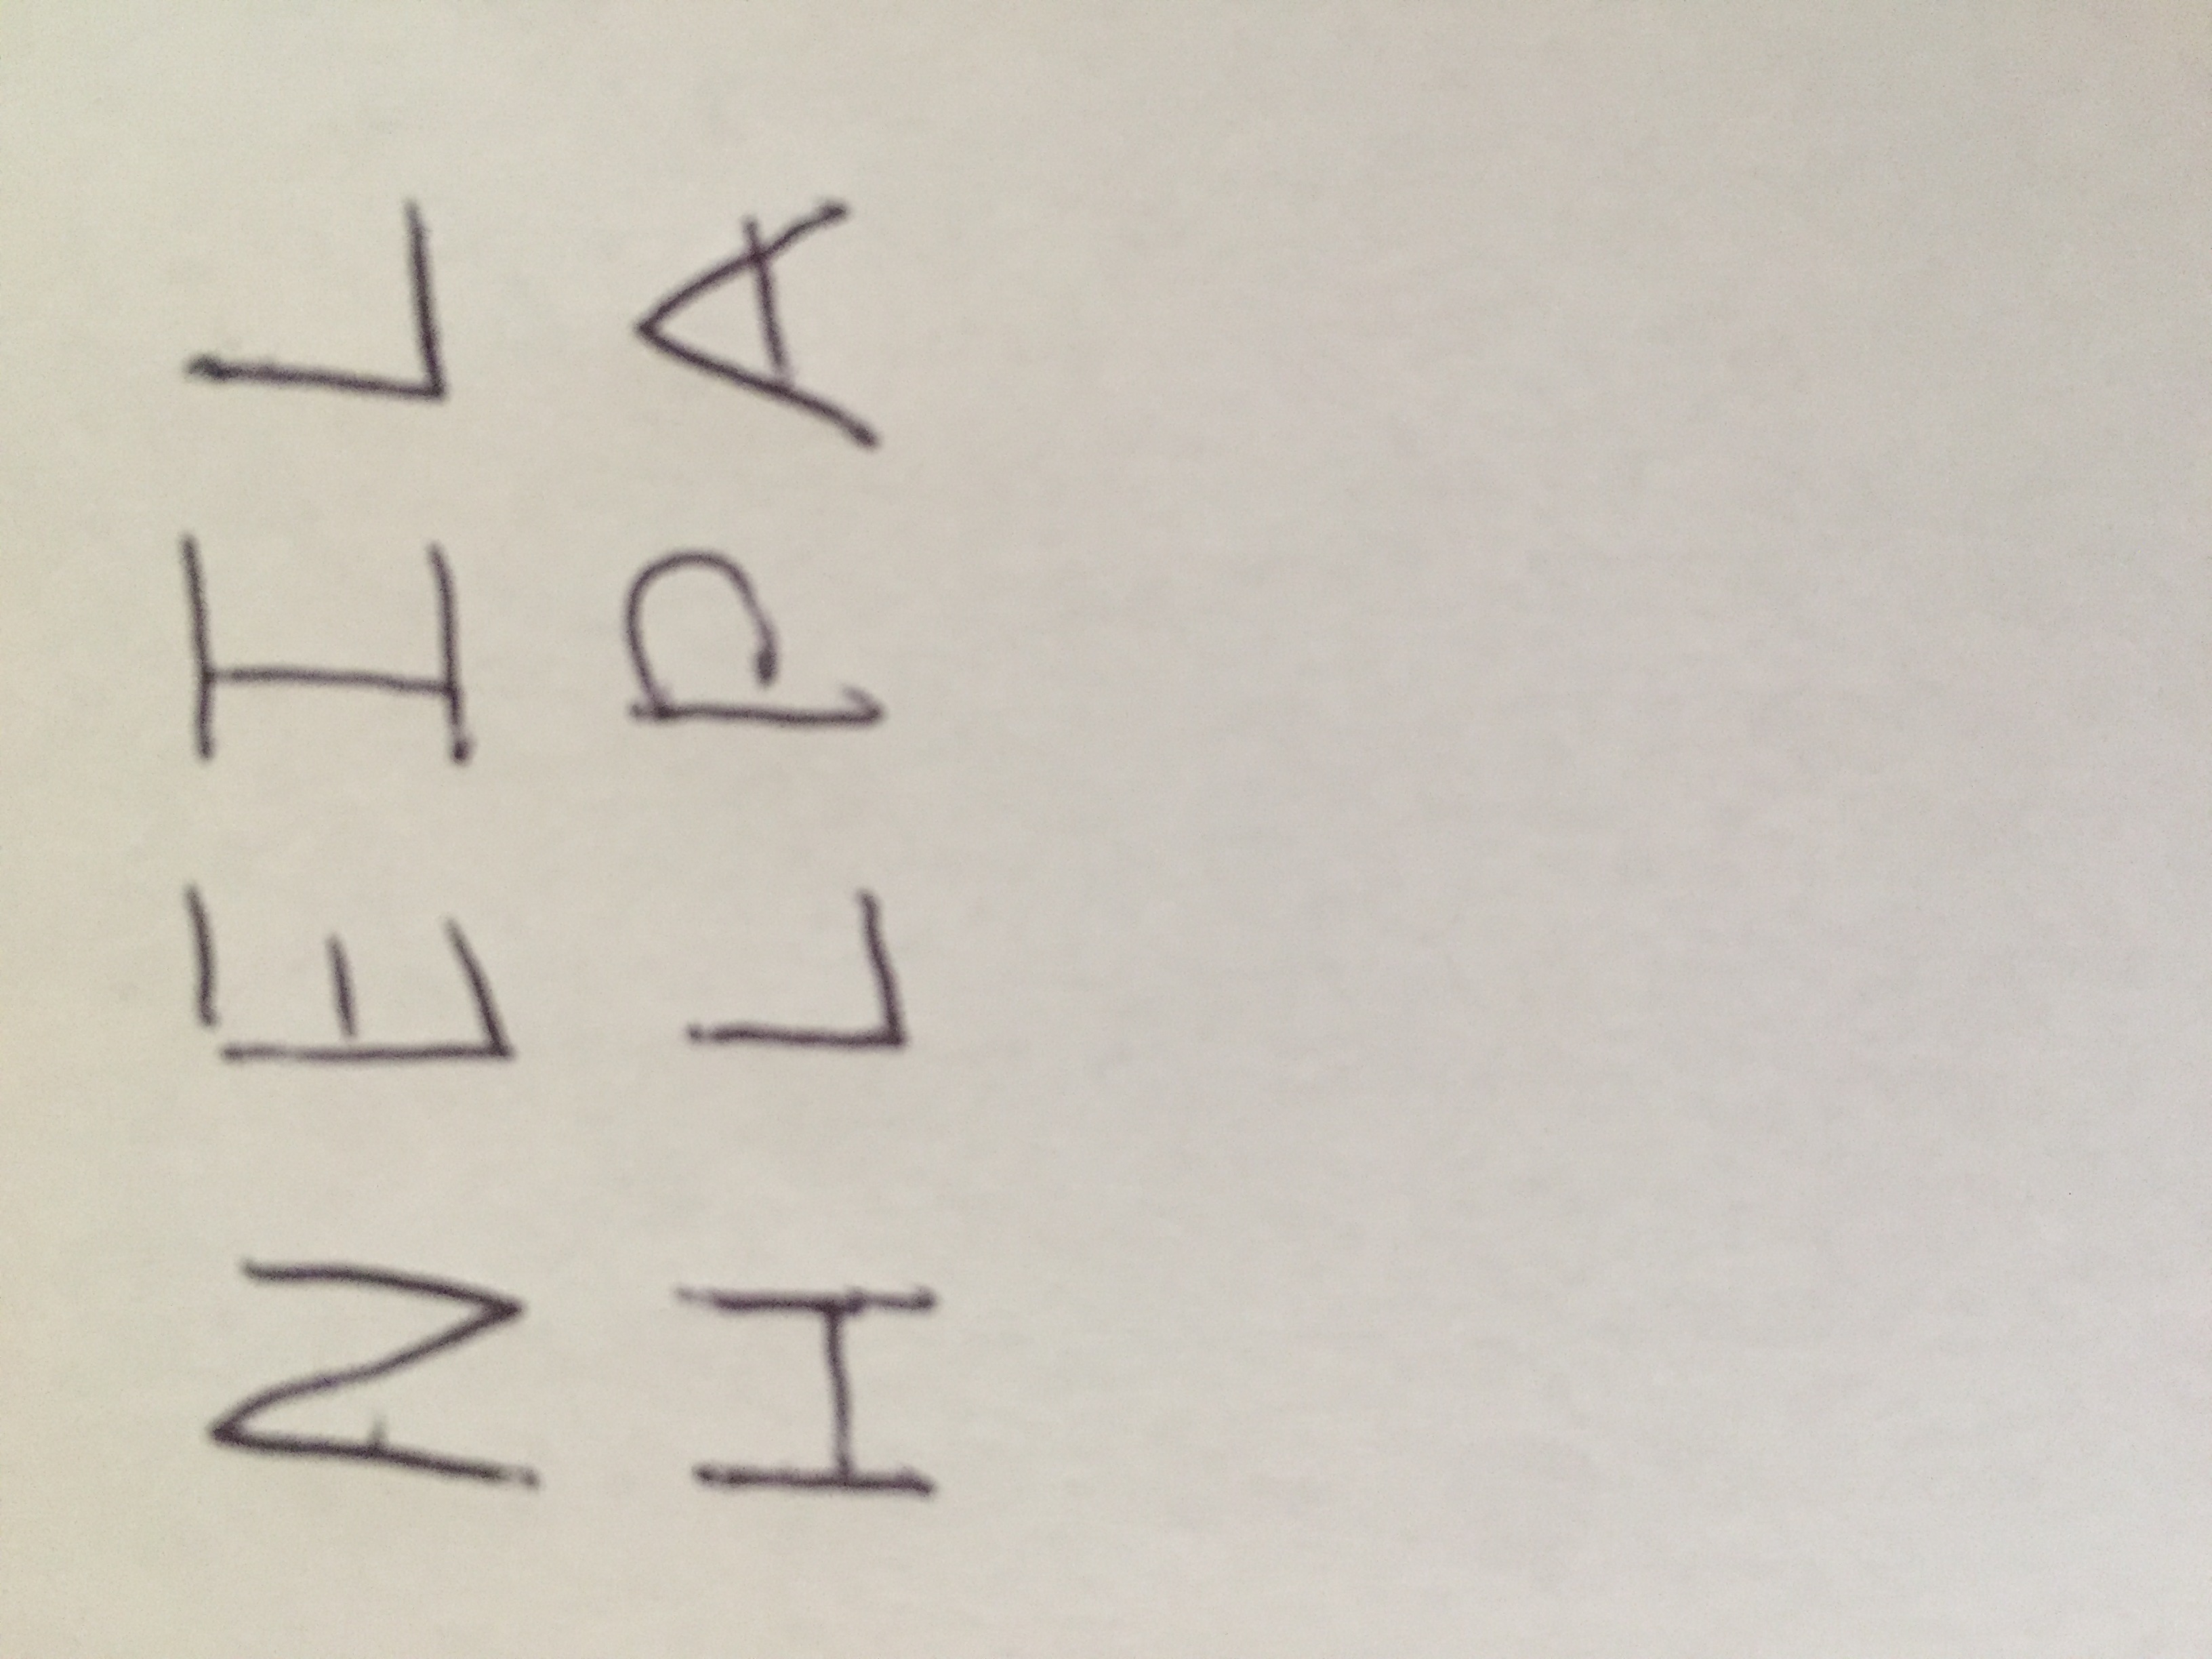 N E I L
H L P A